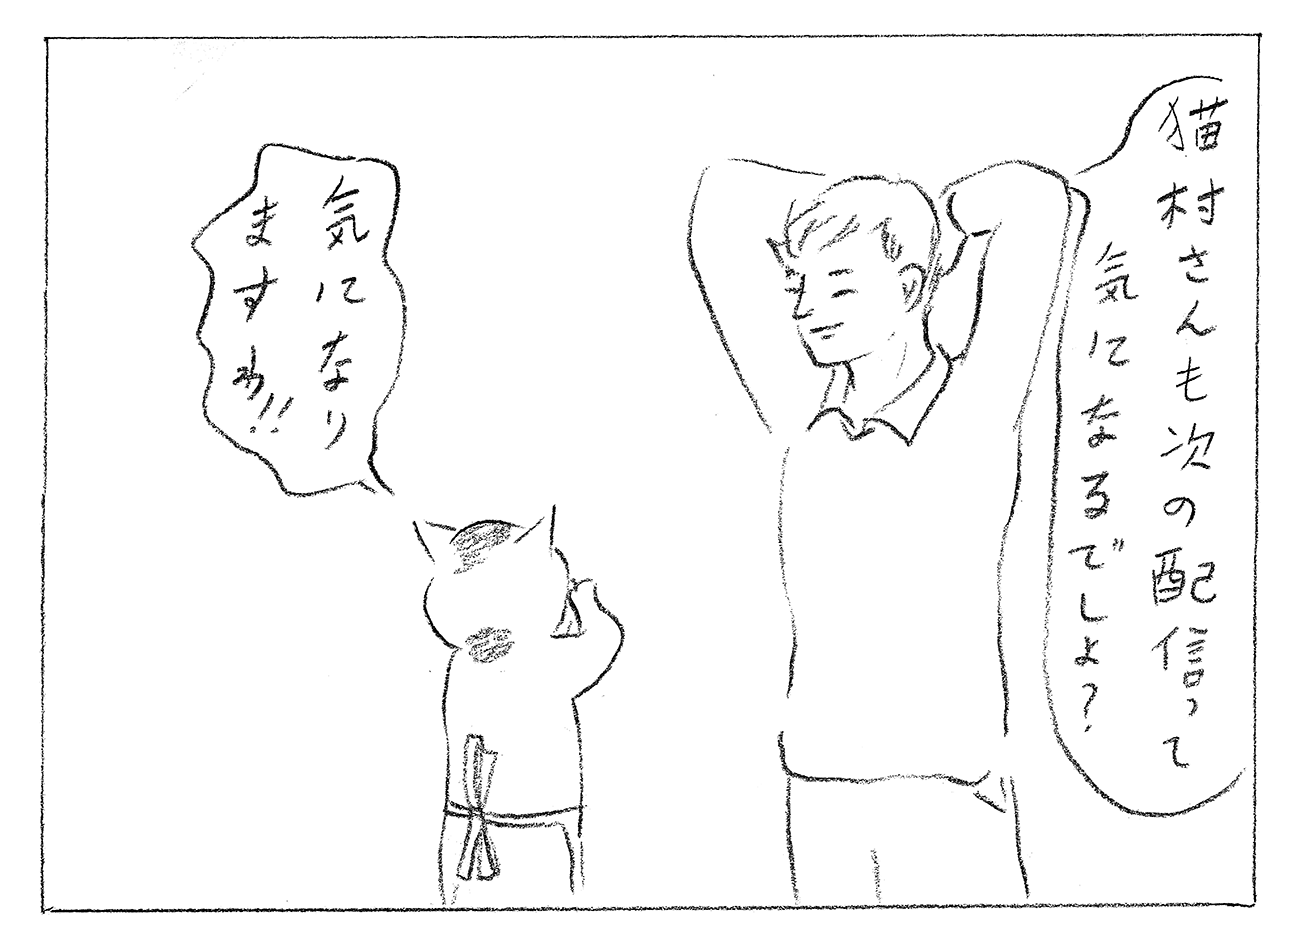 猫村さんも次の配信って
気になるでしょ?
気になり
ますわ!!